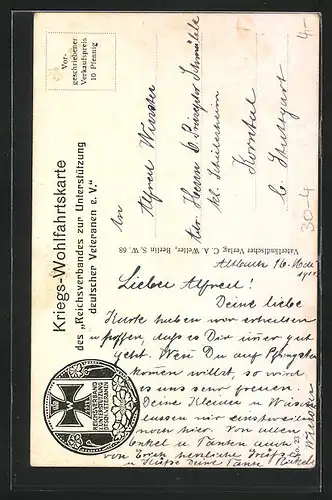 Vor-
geschriebener
Verkaufspreis
10 Pfennig
Kriegs-Wohlfahrtskarte
des „Reichsverbandes zur Unterstützung
deutscher Veteranen e. V.“
REICHSVERBAND
ZUR UNTERSTÜTZUNG
DTSCH. VETERANEN
Vaterländischer Verlag C. A. Weller, Berlin S.W. 68
An
Alfred
Herrn
Schülerheim
Korntal
b. Stuttgart
30-4
4.-
16. Mai
Lieber Alfred!
Deine liebe
Karte haben wir erhalten
u. hoffen, daß es Dir immer gut
geht. Wenn Du auf Pfingsten
kommen willst, so wird
es uns sehr freuen.
Deine Kleider u. Wäsche
lassen wir
noch hier. Von allen
Onkel u. Tanten auch
von Erich herzliche Grüße
u. Küsse Deine Tante